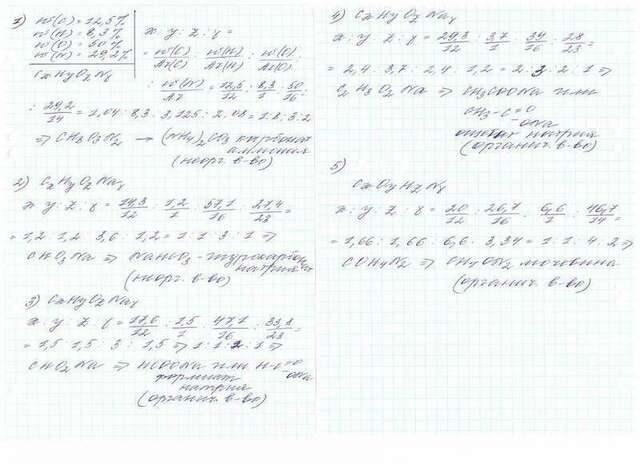 1) w(C) = 12,5%
w(H) = 8,3%
w(O) = 50%
w(N) = 29,2%
CxHyOzNr
x : y : z : r =
= w(C)/Ar(C) : w(H)/Ar(H) : w(O)/Ar(O) :
: w(N)/Ar = 12,5/12 : 8,3/1 : 50/16 :
: 29,2/14 = 1,04 : 8,3 : 3,125 : 2,08 = 1:8:3:2
⇒ CH8O3N2 → (NH4)2CO3 карбонат
аммония
(неорг. в-во)
2) CxHyOzNar
x : y : z : r = 14,3/12 : 1,2/1 : 57,1/16 : 27,4/23 =
= 1,2 : 1,2 : 3,6 : 1,2 = 1 : 1 : 3 : 1 ⇒
CHO3Na ⇒ NaHCO3 - гидрокарбонат
натрия
(неорг. в-во)
3) CxHyOzNar
x : y : z : r = 17,6/12 : 1,5/1 : 47,1/16 : 33,8/23 =
= 1,5 : 1,5 : 3 : 1,5 ⇒ 1 : 1 : 2 : 1 ⇒
CHO2Na ⇒ HCOONa или H-C=O
-ONa
формиат
натрия
(органич. в-во)
4) CxHyOzNar
x : y : z : r = 29,3/12 : 3,7/1 : 39/16 : 28/23 =
= 2,4 : 3,7 : 2,4 : 1,2 = 2 : 3 : 2 : 1 ⇒
C2H3O2Na ⇒ CH3COONa или
CH3-C=O
-ONa
ацетат натрия
(органич. в-во)
5)
CxOyHzNr
x : y : z : r = 20/12 : 26,7/16 : 6,6/1 : 46,7/14 =
= 1,66 : 1,66 : 6,6 : 3,34 = 1 : 1 : 4 : 2 ⇒
COH4N2 ⇒ CH4ON2 мочевина
(органич. в-во)